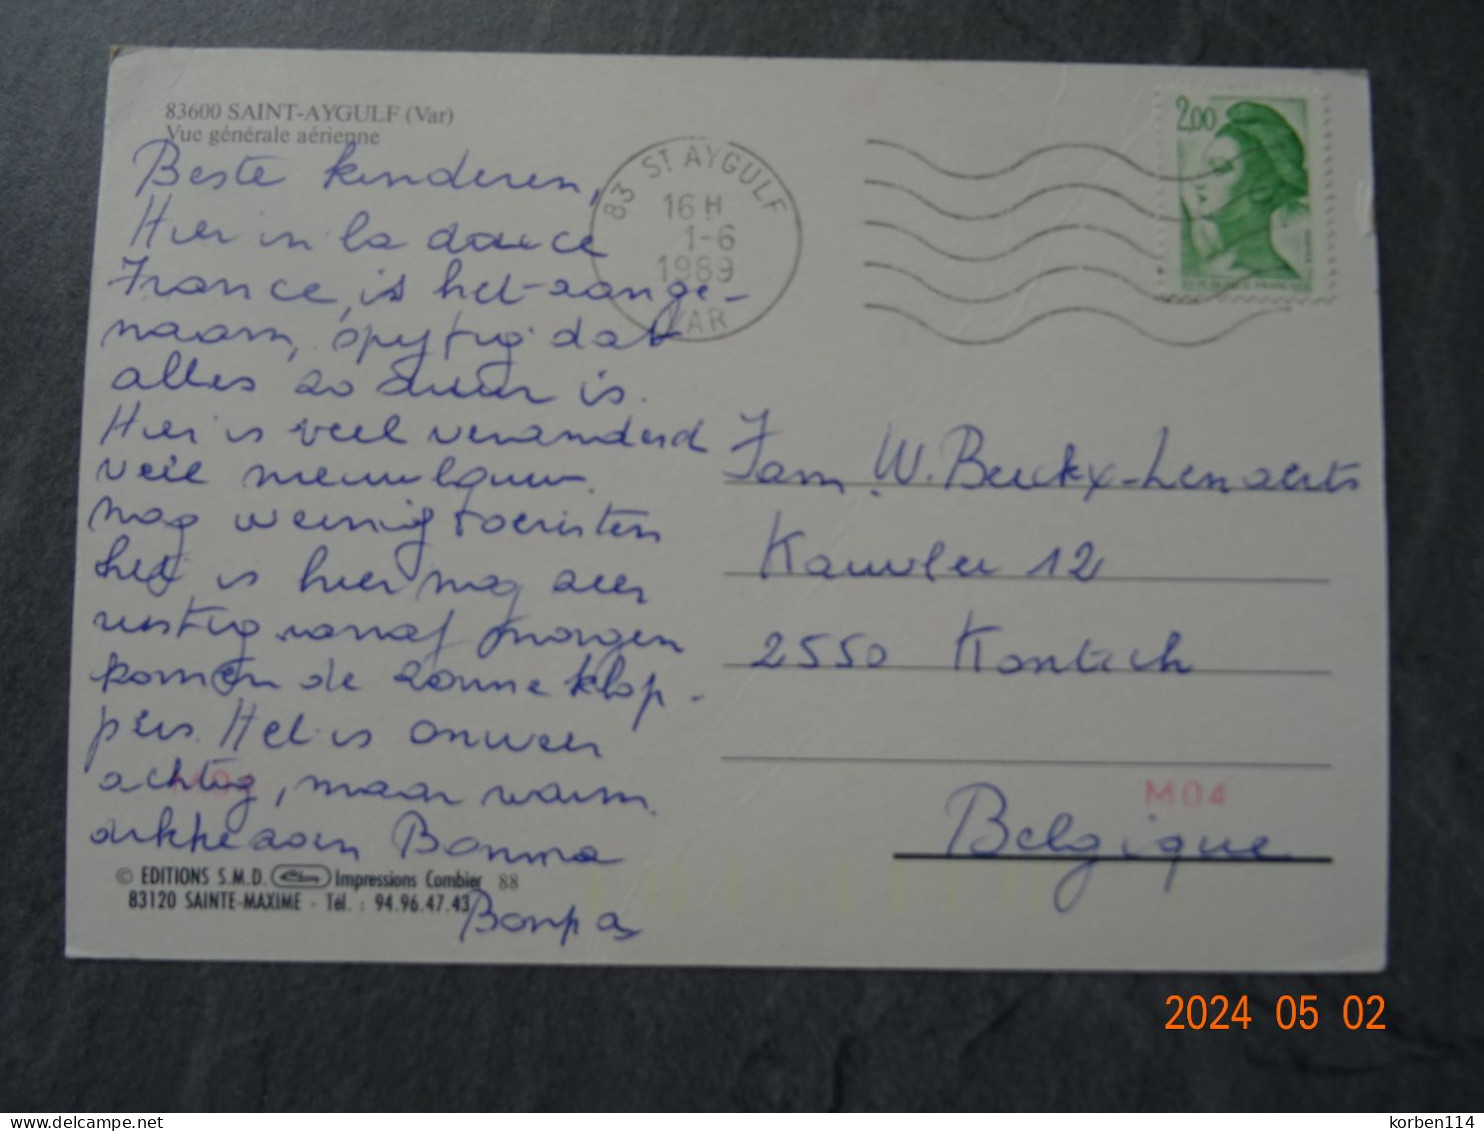 83600 SAINT-AYGULF (Var)
Vue générale aérienne
Beste kinderen,
Hier in la douce
France, is het aange-
naam, spijtig dat
alles zo duur is.
Hier is veel veranderd
veel nieuwbouw.
nog weinig toeristen
het is hier nog zeer
rustig vanaf morgen
komen de zonneklop-
pers. Het is onweer
achtig, maar warm.
dikke zoen Bomma
Bompa
© EDITIONS S.M.D. Impressions Combier 88
83120 SAINTE-MAXIME - Tél. : 94.96.47.43
83 ST AYGULF
16 H
1-6
1989
VAR
2,00
REPUBLIQUE FRANÇAISE
Fam. W. Beuckx-Lenaerts
12
2550 Kontich
M04
Belgique
2024 05 02
korben114